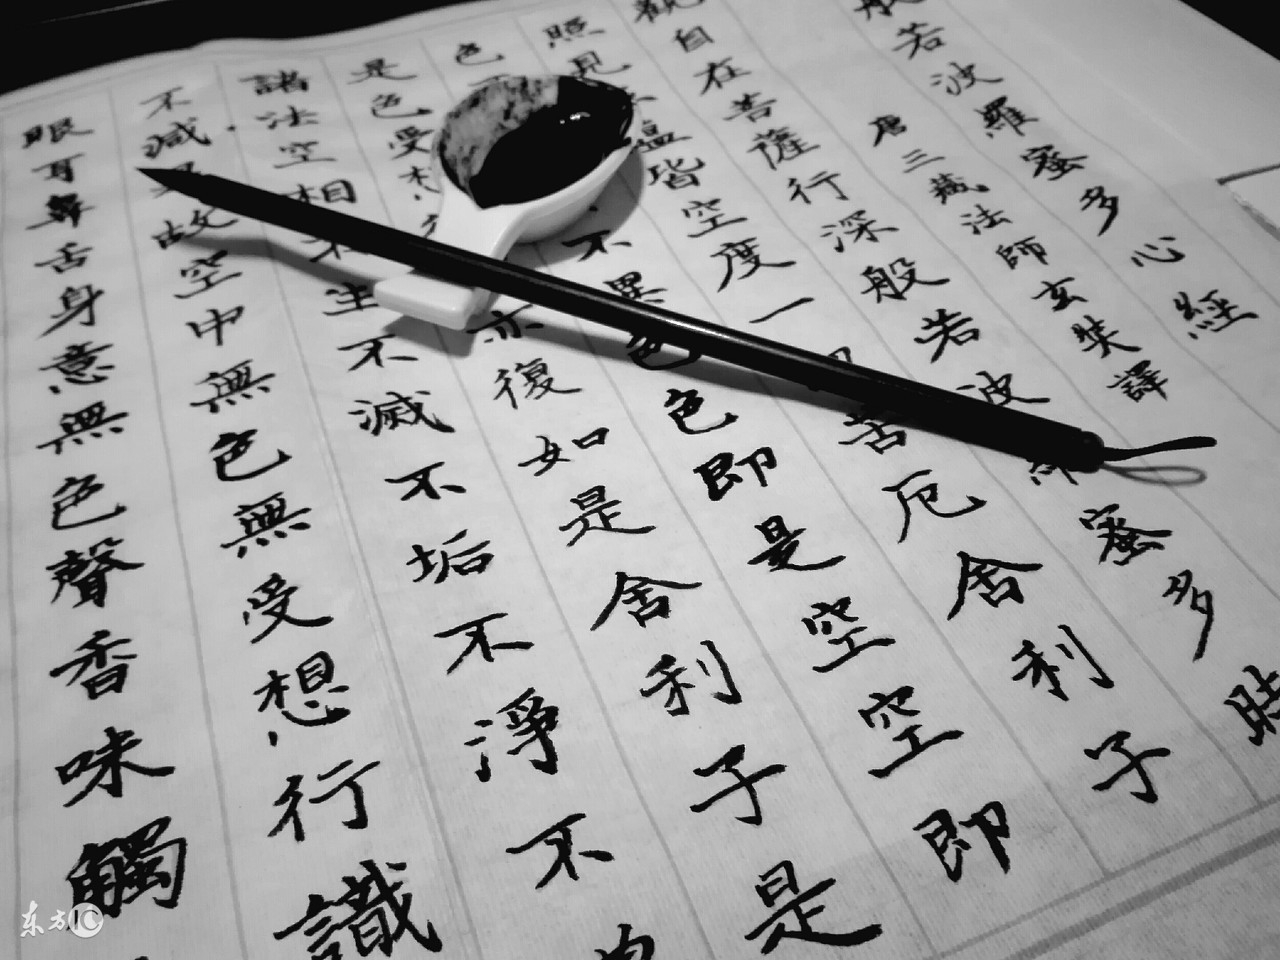 般若波羅蜜多心經
唐三藏法師玄奘譯
觀自在菩薩行深般若波蜜多時
照見蘊皆空度一苦厄舍利子
色不異色色即是空空即
是色受想亦復如是舍利子是
諸法空相不生不滅不垢不淨不
不減是故空中無色無受想行識
眼耳鼻舌身意無色聲香味觸
东方IC